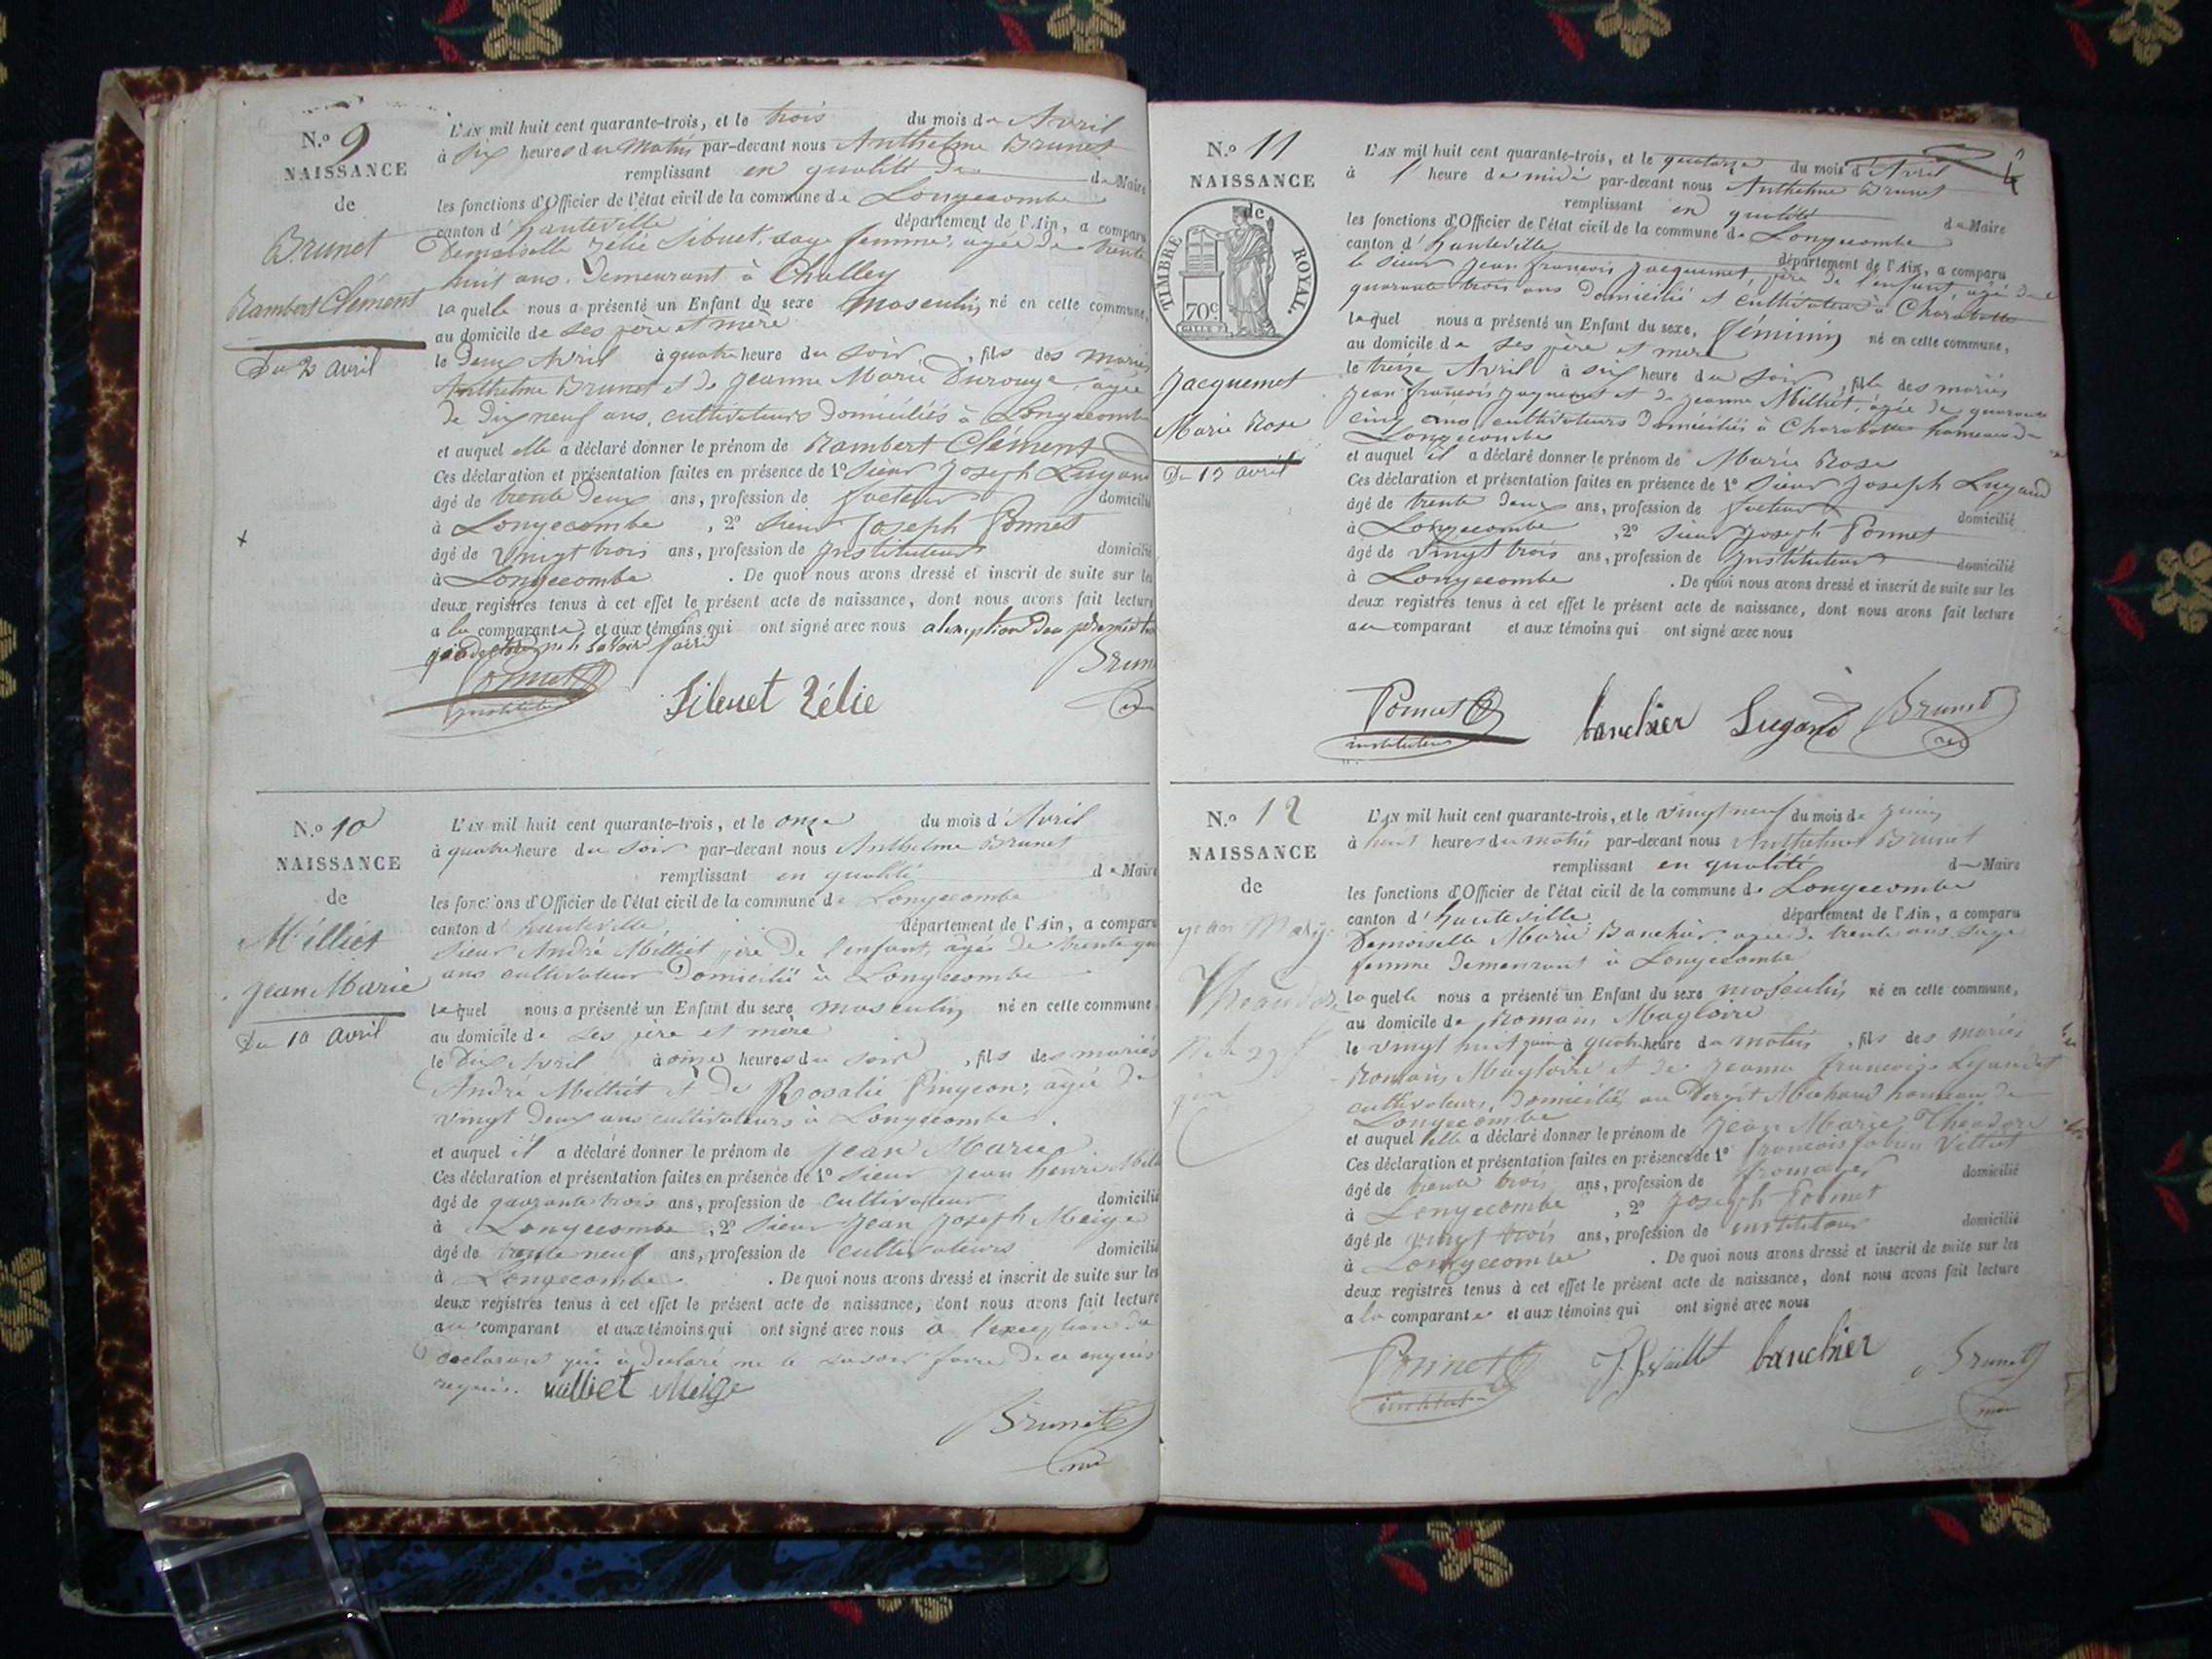 N.º 9
NAISSANCE
de
Brunet
Rambert Clément
Du 2 avril
L'AN mil huit cent quarante-trois, et le trois du mois de Avril
à six heures du matin par-devant nous Anthelme Brunet
remplissant en qualité de de Maire
les fonctions d'Officier de l'état civil de la commune de Longecombe
canton d'hauteville département de l'Ain, a comparu
Demoiselle Zélie Sibuet, sage femme, agée de trente
huit ans. Demeurant à Challey
laquelle nous a présenté un Enfant du sexe masculin né en cette commune,
au domicile de ses père et mère
le Deux Avril à quatre heure du soir, fils des mariés
Anthelme Brunet et de Jeanne Marie Durouge, agée
de dix neuf ans, cultivateurs domiciliés à Longecombe
et auquel elle a déclaré donner le prénom de Rambert Clément
Ces déclaration et présentation faites en présence de 1º Sieur Joseph Lugand
âgé de trente deux ans, profession de facteur domicilié
à Longecombe, 2º Sieur Joseph Ponnet
âgé de vingt trois ans, profession de Instituteur domicilié
à Longecombe. De quoi nous avons dressé et inscrit de suite sur les
deux registres tenus à cet effet le présent acte de naissance, dont nous avons fait lecture
a la comparante, et aux témoins qui ont signé avec nous
savoir faire
Ponnet
instituteur
Sibuet Zélie
Brun
N.º 10
NAISSANCE
de
Milliet
Jean Marie
Du 10 avril
L'AN mil huit cent quarante-trois, et le onze du mois d'Avril
à quatre heure du soir par-devant nous Anthelme Brunet
remplissant en qualité de Maire
les fonctions d'Officier de l'état civil de la commune de Longecombe
canton d'hauteville département de l'Ain, a comparu
Sieur André Milliet père de l'enfant, agé de trente
ans cultivateur Domicilié à Longecombe
lequel nous a présenté un Enfant du sexe masculin né en cette commune,
au domicile de ses père et mère
le Dix Avril à onze heures du soir, fils des mariés
André Milliet et de Rosalie Pingeon, agée de
vingt Deux ans cultivateurs à Longecombe.
et auquel il a déclaré donner le prénom de Jean Marie
Ces déclaration et présentation faites en présence de 1º Sieur Jean henri
âgé de quarante trois ans, profession de Cultivateur domicilié
à Longecombe, 2º Sieur Jean Joseph Meige
âgé de trente neuf ans, profession de cultivateurs domicilié
à Longecombe. De quoi nous avons dressé et inscrit de suite sur les
deux registres tenus à cet effet le présent acte de naissance, dont nous avons fait lecture
au comparant et aux témoins qui ont signé avec nous à l'exception du
déclarant qui a déclaré ne le savoir faire de ce enquis
requis. milliet Meige
Brunet
N.º 11
NAISSANCE
de
TIMBRE ROYAL.
70c.
Jacquemet
Marie Rose
Du 13 avril
L'AN mil huit cent quarante-trois, et le quatorze du mois d'Avril
à 1 heure de midi par-devant nous Anthelme Brunet
remplissant en qualité de Maire
les fonctions d'Officier de l'état civil de la commune de Longecombe
canton d'hauteville département de l'Ain, a comparu
le sieur Jean françois Jacquemet, père de l'enfant, agé de
quarante trois ans domicilié et cultivateur à Charabotte
lequel nous a présenté un Enfant du sexe, féminin né en cette commune,
au domicile de ses père et mère
le treize Avril à six heure du soir, fille des mariés
Jean françois Jaquemet et de Jeanne Milliet, agée de quarante
cinq ans cultivateurs Domiciliés à Charabotte hameau de
Longecombe
et auquel il a déclaré donner le prénom de Marie Rose
Ces déclaration et présentation faites en présence de 1º Sieur Joseph Lugand
âgé de trente deux ans, profession de facteur domicilié
à Longecombe, 2º Sieur Joseph Ponnet
âgé de vingt trois ans, profession de Instituteur domicilié
à Longecombe. De quoi nous avons dressé et inscrit de suite sur les
deux registres tenus à cet effet le présent acte de naissance, dont nous avons fait lecture
au comparant et aux témoins qui ont signé avec nous
Ponnet
instituteur
banchier Lugand Brunet
N.º 12
NAISSANCE
de
Jean Marie
Théodore
L'AN mil huit cent quarante-trois, et le vingt neuf du mois de juin
à huit heures du matin par-devant nous Anthelme Brunet
remplissant en qualité de Maire
les fonctions d'Officier de l'état civil de la commune de Longecombe
canton d'hauteville département de l'Ain, a comparu
Demoiselle Marie Banchier agée de trente ans sage
femme demeurant à Longecombe
laquelle nous a présenté un Enfant du sexe masculin né en cette commune,
au domicile de Romain Magloire
le vingt huit juin à quatre heure du matin, fils des mariés
Romain Magloire et de Jeanne françoise
cultivateurs, domiciliés au hameau de
Longecombe
et auquel elle a déclaré donner le prénom de Jean Marie Théodore
Ces déclaration et présentation faites en présence de 1º françois
âgé de trente trois ans, profession de fromager domicilié
à Longecombe, 2º Joseph Ponnet
âgé de vingt trois ans, profession de instituteur domicilié
à Longecombe. De quoi nous avons dressé et inscrit de suite sur les
deux registres tenus à cet effet le présent acte de naissance, dont nous avons fait lecture
a la comparante et aux témoins qui ont signé avec nous
Ponnet
instituteur
banchier
Brunet